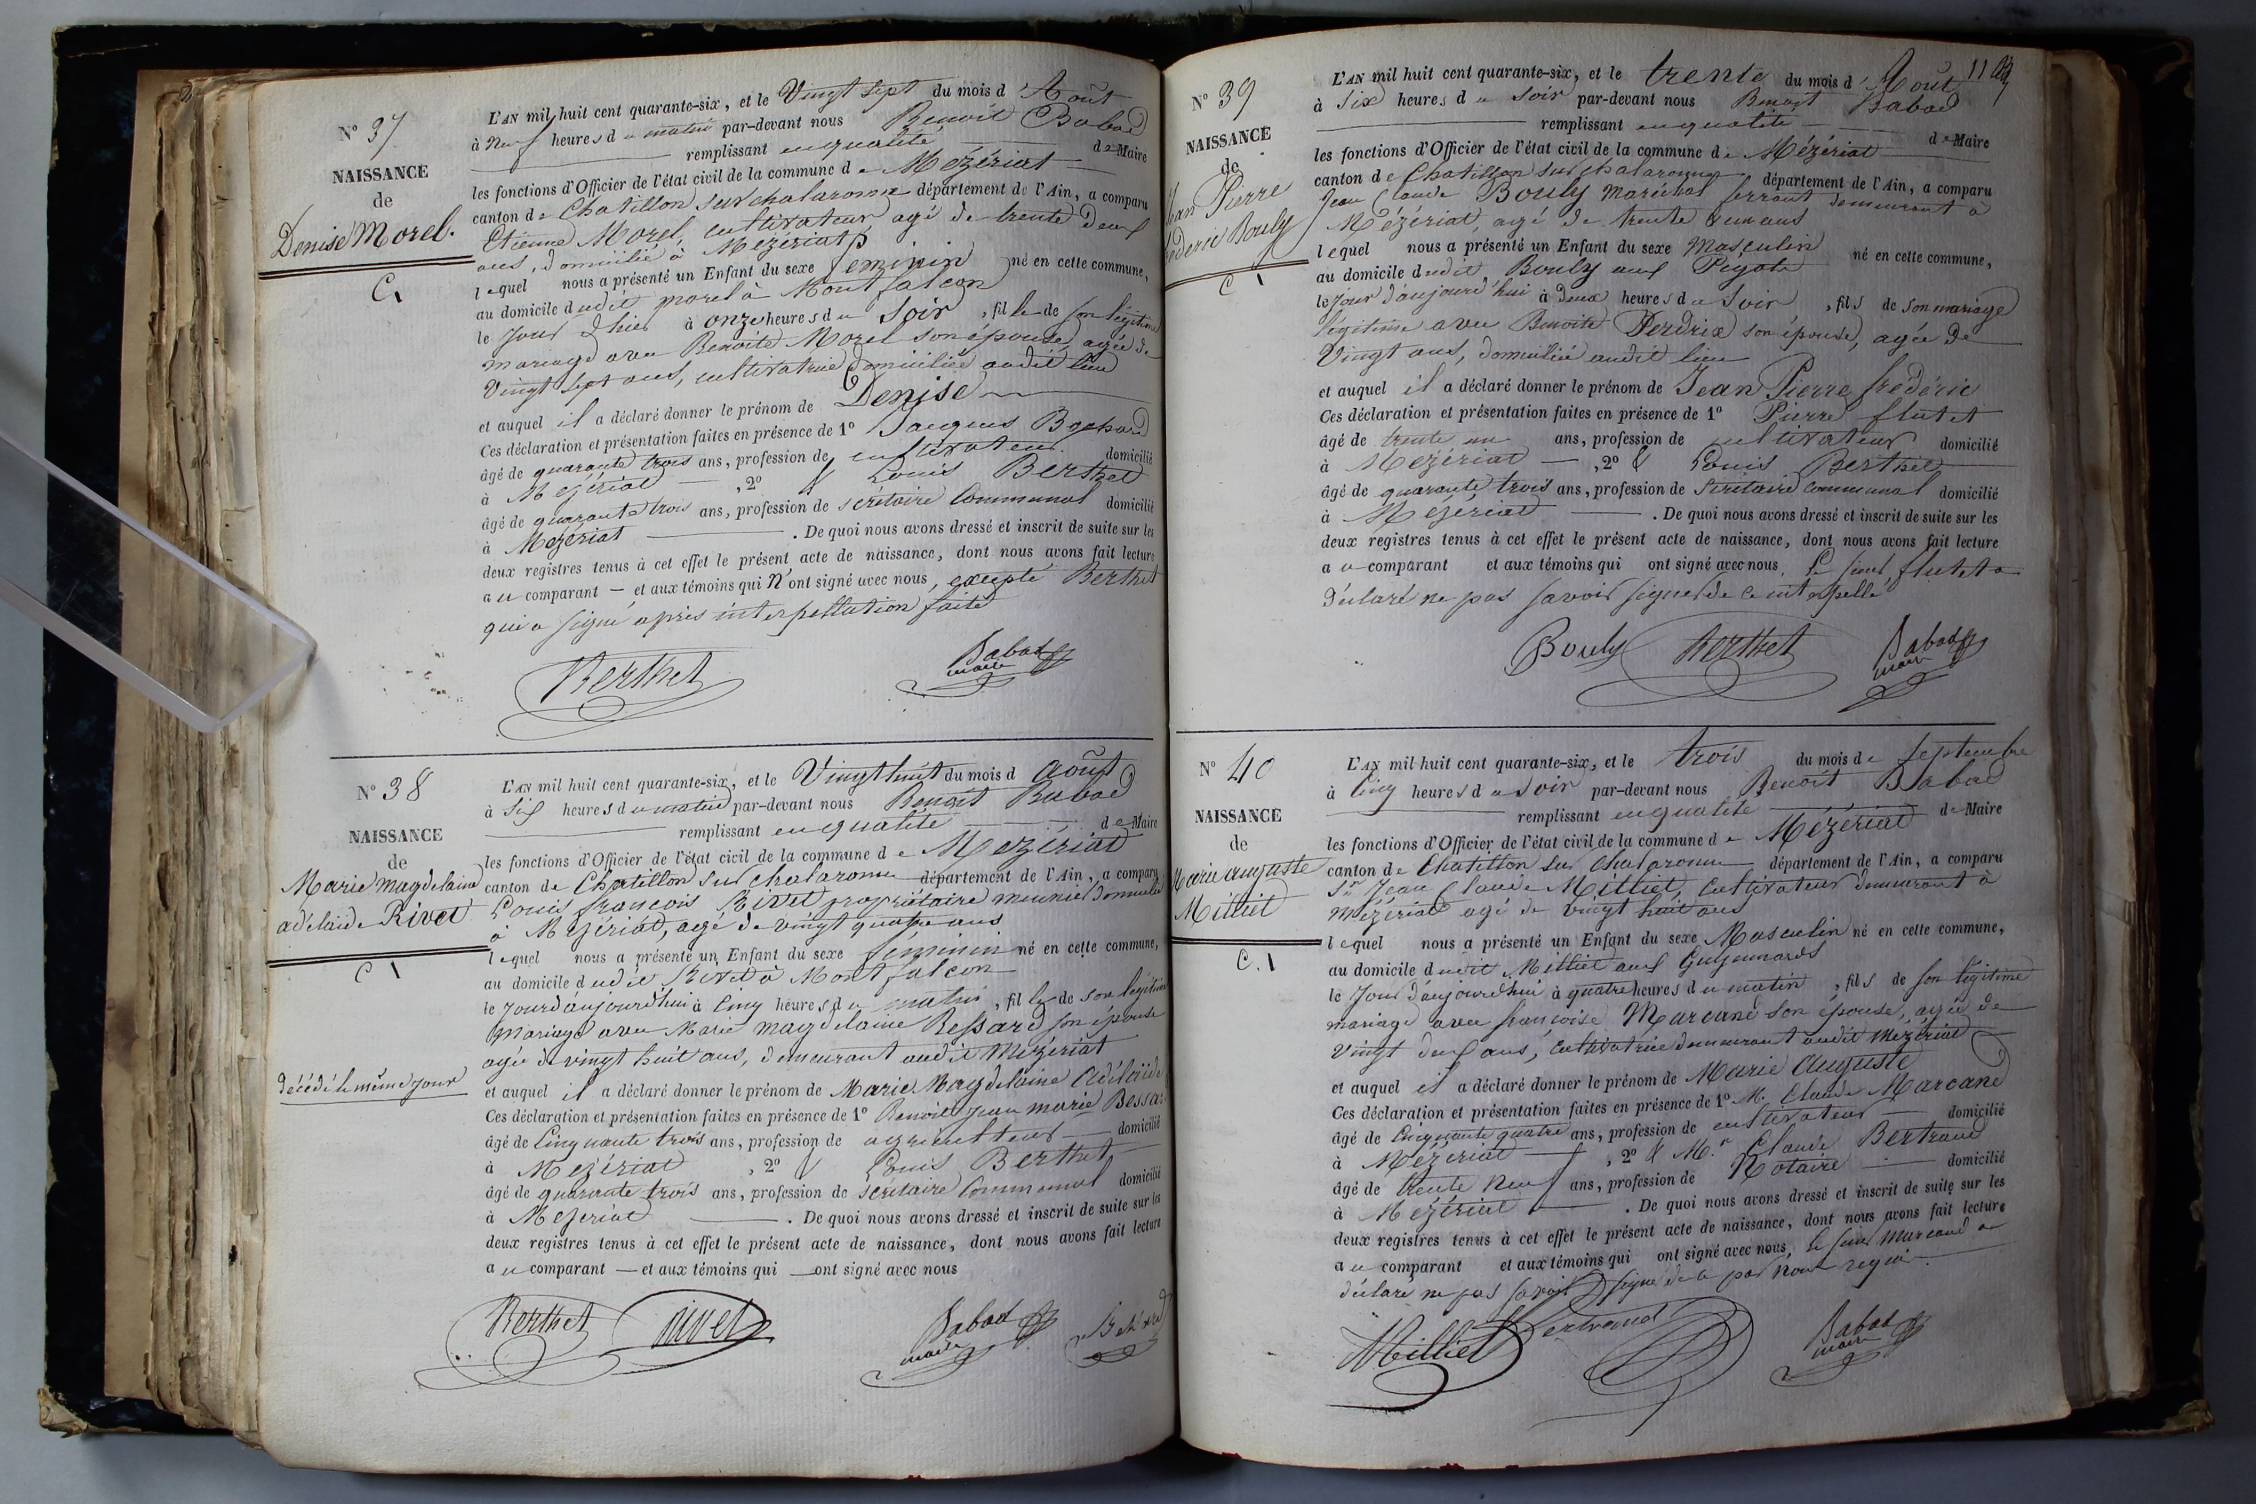 N° 37
NAISSANCE
de
Denise Morel.
L'AN mil huit cent quarante-six, et le Vingt sept du mois d'Août
à neuf heures du matin par-devant nous Benoît Babad
remplissant en qualité de Maire
les fonctions d'Officier de l'état civil de la commune de Mézériat
canton de Chatillon sur chalaronne département de l'Ain, a comparu
Etienne Morel, cultivateur, agé de trente deux
ans, domicilié à Mézériat
lequel nous a présenté un Enfant du sexe feminin né en cette commune,
au domicile dudit morel à Montfalcon
le jour d'hier à onze heures du soir, fille de son légitime
mariage avec Benoite Morel son épouse, agée de
vingt sept ans, cultivatrice domiciliée audit lieu
et auquel il a déclaré donner le prénom de Denise
Ces déclaration et présentation faites en présence de 1° Jacques Bochard
âgé de quarante trois ans, profession de cultivateur domicilié
à Mézériat, 2° & Louis Berthet
âgé de quarante trois ans, profession de sécrétaire Communal domicilié
à Mézériat. De quoi nous avons dressé et inscrit de suite sur les
deux registres tenus à cet effet le présent acte de naissance, dont nous avons fait lecture
au comparant et aux témoins qui n'ont signé avec nous, excepté Berthet
qui a signé après interpellation faite
Berthet Babad
maire
N° 38
NAISSANCE
de
Marie magdelaine
adélaide Rivet
décédé le même jour
L'AN mil huit cent quarante-six, et le Vingt huit du mois d'août
à six heures du matin par-devant nous Benoît Babad
remplissant en qualité de Maire
les fonctions d'Officier de l'état civil de la commune de Mézériat
canton de Chatillon sur chalaronne département de l'Ain, a comparu
Louis françois Rivet propriétaire meunier domicilié
à Mézériat, agé de vingt quatre ans
lequel nous a présenté un Enfant du sexe féminin né en cette commune,
au domicile dudit Rivet à Montfalcon
le jour d'aujourd'hui à cinq heures du matin, fille de son légitime
mariage avec Marie magdelaine Bessard son épouse
agée de vingt huit ans, demeurant audit Mézériat
et auquel il a déclaré donner le prénom de Marie Magdelaine Adélaïde
Ces déclaration et présentation faites en présence de 1° Benoit jean marie Bessar
âgé de Cinquante trois ans, profession de agriculteur domicilié
à Mézériat, 2° & Louis Berthet
âgé de quarante trois ans, profession de sécrétaire Communal domicilié
à Mézériat. De quoi nous avons dressé et inscrit de suite sur les
deux registres tenus à cet effet le présent acte de naissance, dont nous avons fait lecture
au comparant et aux témoins qui ont signé avec nous
Berthet Rivet Babad
maire
11
N° 39
NAISSANCE
de
Jean Pierre
fréderic Bouly
L'AN mil huit cent quarante-six, et le trente du mois d'Août
à six heures du soir par-devant nous Benoît Babad
remplissant en qualité de Maire
les fonctions d'Officier de l'état civil de la commune de Mézériat
canton de Chatillon sur chalaronne département de l'Ain, a comparu
Jean Claude Bouly maréchal ferrant demeurant à
Mézériat, agé de trente un ans
lequel nous a présenté un Enfant du sexe Masculin né en cette commune,
au domicile dudit Bouly aux
le jour d'aujourd'hui à deux heures du soir, fils de son mariage
légitime avec Benoite Perdrix son épouse, agée de
Vingt ans, domiciliée audit lieu
et auquel il a déclaré donner le prénom de Jean Pierre fredéric
Ces déclaration et présentation faites en présence de 1° Pierre flutet
âgé de trente un ans, profession de cultivateur domicilié
à Mézériat, 2° & Louis Berthet
âgé de quarante trois ans, profession de Sécrétaire communal domicilié
à Mézériat. De quoi nous avons dressé et inscrit de suite sur les
deux registres tenus à cet effet le présent acte de naissance, dont nous avons fait lecture
au comparant et aux témoins qui ont signé avec nous, Le sieur flutet a
déclaré ne pas savoir signer de ce interpellé
Bouly Berthet Babad
maire
N° 40
NAISSANCE
de
Marie auguste
Milliet
C. 1
L'AN mil huit cent quarante-six, et le trois du mois de septembre
à Cinq heures du soir par-devant nous Benoît Babad
remplissant en qualité de Maire
les fonctions d'Officier de l'état civil de la commune de Mézériat
canton de Chatillon sur chalaronne département de l'Ain, a comparu
Sr Jean Claude Milliet, Cultivateur demeurant à
Mézériat agé de vingt huit ans
lequel nous a présenté un Enfant du sexe Masculin né en cette commune,
au domicile dudit Milliet aux
le jour d'aujourd'hui à quatre heures du matin, fils de son légitime
mariage avec françoise Marcand son épouse, agée de
vingt deux ans, Cultivatrice demeurant audit Mézériat
et auquel il a déclaré donner le prénom de Marie Auguste
Ces déclaration et présentation faites en présence de 1° M. Claude Marcand
âgé de Cinquante quatre ans, profession de cultivateur domicilié
à Mézériat, 2° & Mr Claude Bertrand
âgé de trente neuf ans, profession de Notaire domicilié
à Mézériat. De quoi nous avons dressé et inscrit de suite sur les
deux registres tenus à cet effet le présent acte de naissance, dont nous avons fait lecture
au comparant et aux témoins qui ont signé avec nous, le sieur Marcand a
déclare ne pas savoir signé de ce par nous requi
Milliet Bertrand Babad
maire